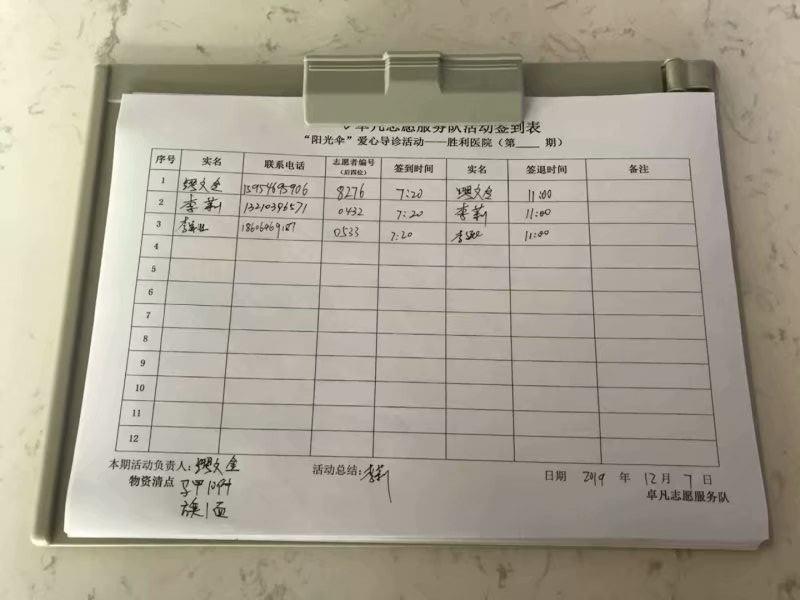 卓凡志愿服务队活动签到表
“阳光伞”爱心导诊活动——胜利医院（第 期）
序号 实名 联系电话 志愿者编号（后四位） 签到时间 实名 签退时间 备注
1 文金 15954695906 8276 7:20 文金 11:00
2 李莉 13210396571 0432 7:20 李莉 11:00
3 李 0533 7:20 李 11:00
4
5
6
7
8
9
10
11
12
本期活动负责人: 文金 活动总结: 李莉 日期 2019 年 12 月 7 日
物资清点 马甲 卓凡志愿服务队
旗1面